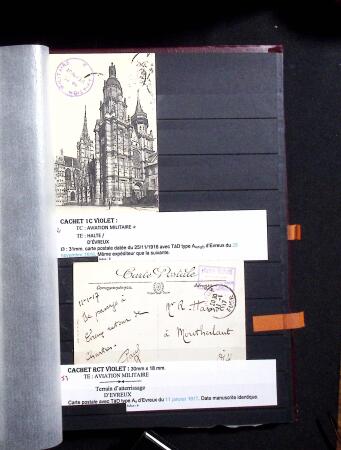 MILITAIRE
CACHET 1C VIOLET :
TC : AVIATION MILITAIRE
TE : HALTE /
D'ÉVREUX
Ø : 31mm. carte postale datée du 25/11/1916 avec TàD type d'Evreux du 25
novembre 1916. Même expéditeur que la suivante.
Carte Postale
Correspondance
11-1-17
De passage à
Evreux retour de
Chartres.
Mr R.
à Montherlant
CACHET RCT VIOLET : 30mm x 18 mm.
TE : AVIATION MILITAIRE
Terrain d'atterrissage
D'EVREUX
Carte postale avec TàD type A d'Evreux du 11 janvier 1917. Date manuscrite identique.